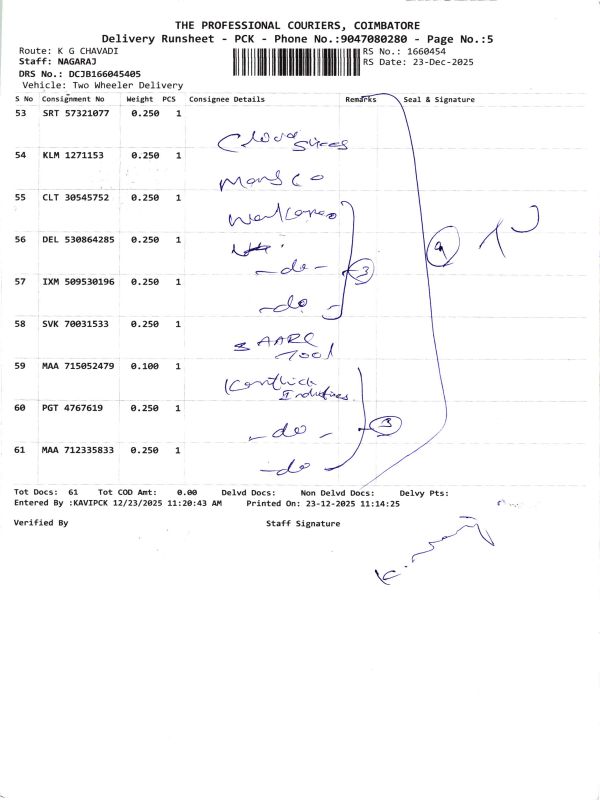 THE PROFESSIONAL COURIERS, COIMBATORE
Delivery Runsheet - PCK - Phone No.:9047080280 - Page No.:5
Route: K G CHAVADI RS No.: 1660454
Staff: NAGARAJ RS Date: 23-Dec-2025
DRS No.: DCJB166045405
Vehicle: Two Wheeler Delivery
S No Consignment No Weight PCS Consignee Details Remarks Seal & Signature
53 SRT 57321077 0.250 1
54 KLM 1271153 0.250 1
55 CLT 30545752 0.250 1
56 DEL 530864285 0.250 1
-do- 3 9
57 IXM 509530196 0.250 1
-do-
58 SVK 70031533 0.250 1
SAARC
Tool
59 MAA 715052479 0.100 1
60 PGT 4767619 0.250 1
-do- 3
61 MAA 712335833 0.250 1
-do-
Tot Docs: 61 Tot COD Amt: 0.00 Delvd Docs: Non Delvd Docs: Delvy Pts:
Entered By :KAVIPCK 12/23/2025 11:20:43 AM Printed On: 23-12-2025 11:14:25
Verified By Staff Signature